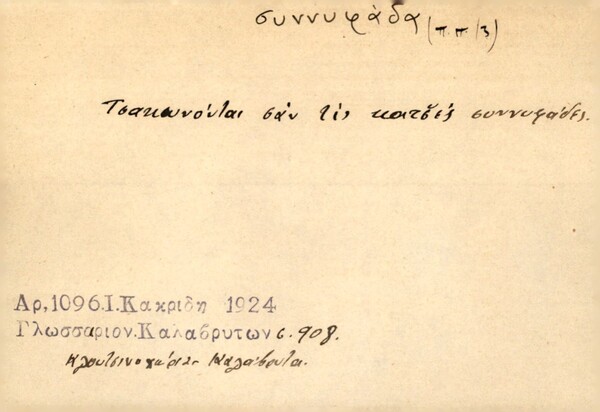 συννυφάδα (π.π./3)
Τσακωνούται σάν τίς κατσές συννυφάδες.
Αρ,1096.Ι.Κακριδη 1924
Γλωσσαριον.Καλαβρυτων σ. 908.
Κλουτσινοχώρια Καλάβρυτα.